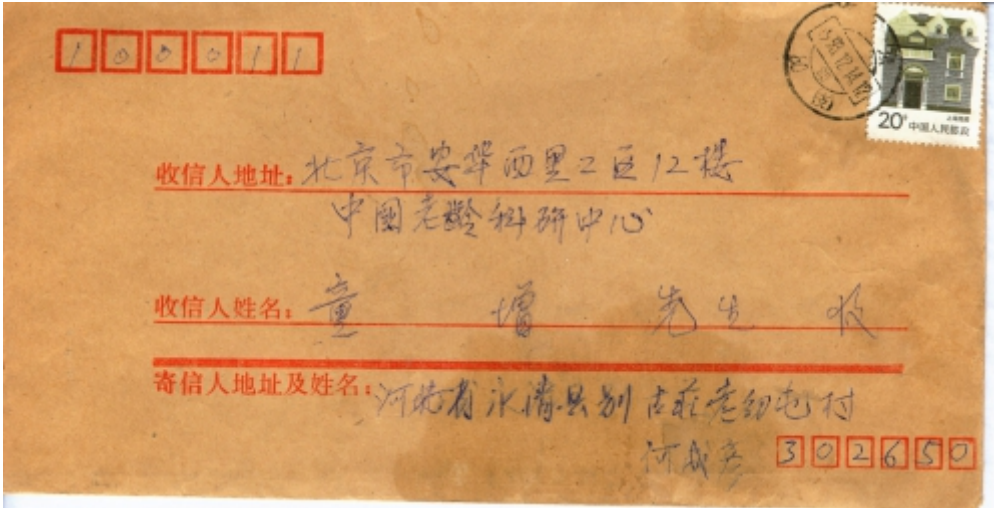 100011
20分 中国人民邮政
收信人地址：北京市安华西里2区12楼
中國老龄科研中心
收信人姓名：童 增 先生 收
寄信人地址及姓名：河北省永清县别古莊老幼屯村
302650